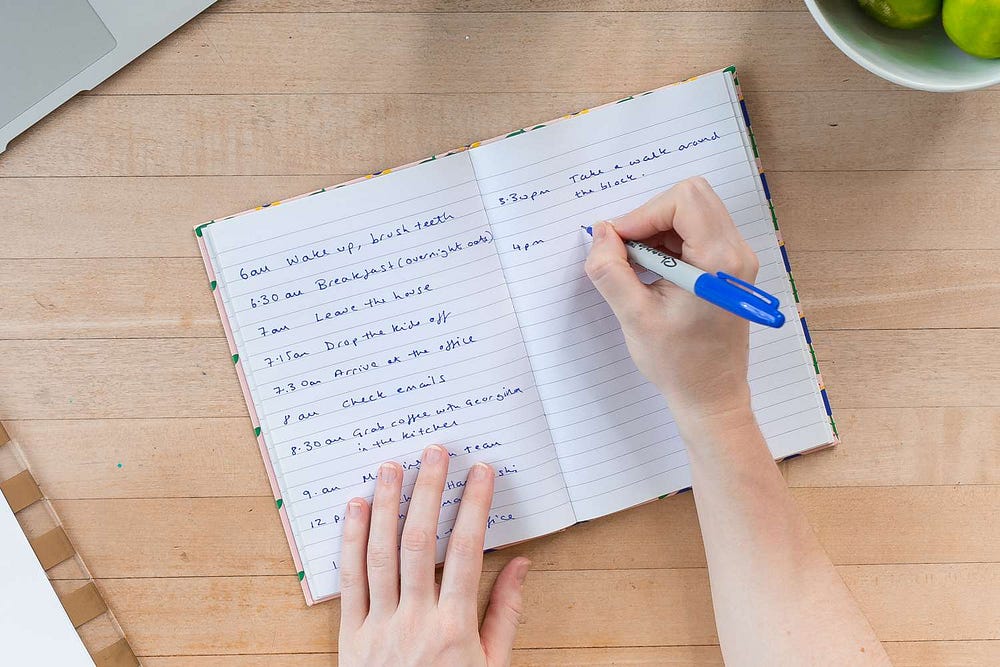 6am Wake up, brush teeth
6.30am Breakfast (overnight oats)
7am Leave the house
7.15am Drop the kids off
7.30am Arrive at the office
8am Check emails
8.30am Grab coffee with Georgina
in the kitchen
9.am team
12
3.30pm Take a walk around
the block.
4pm
Sharpie